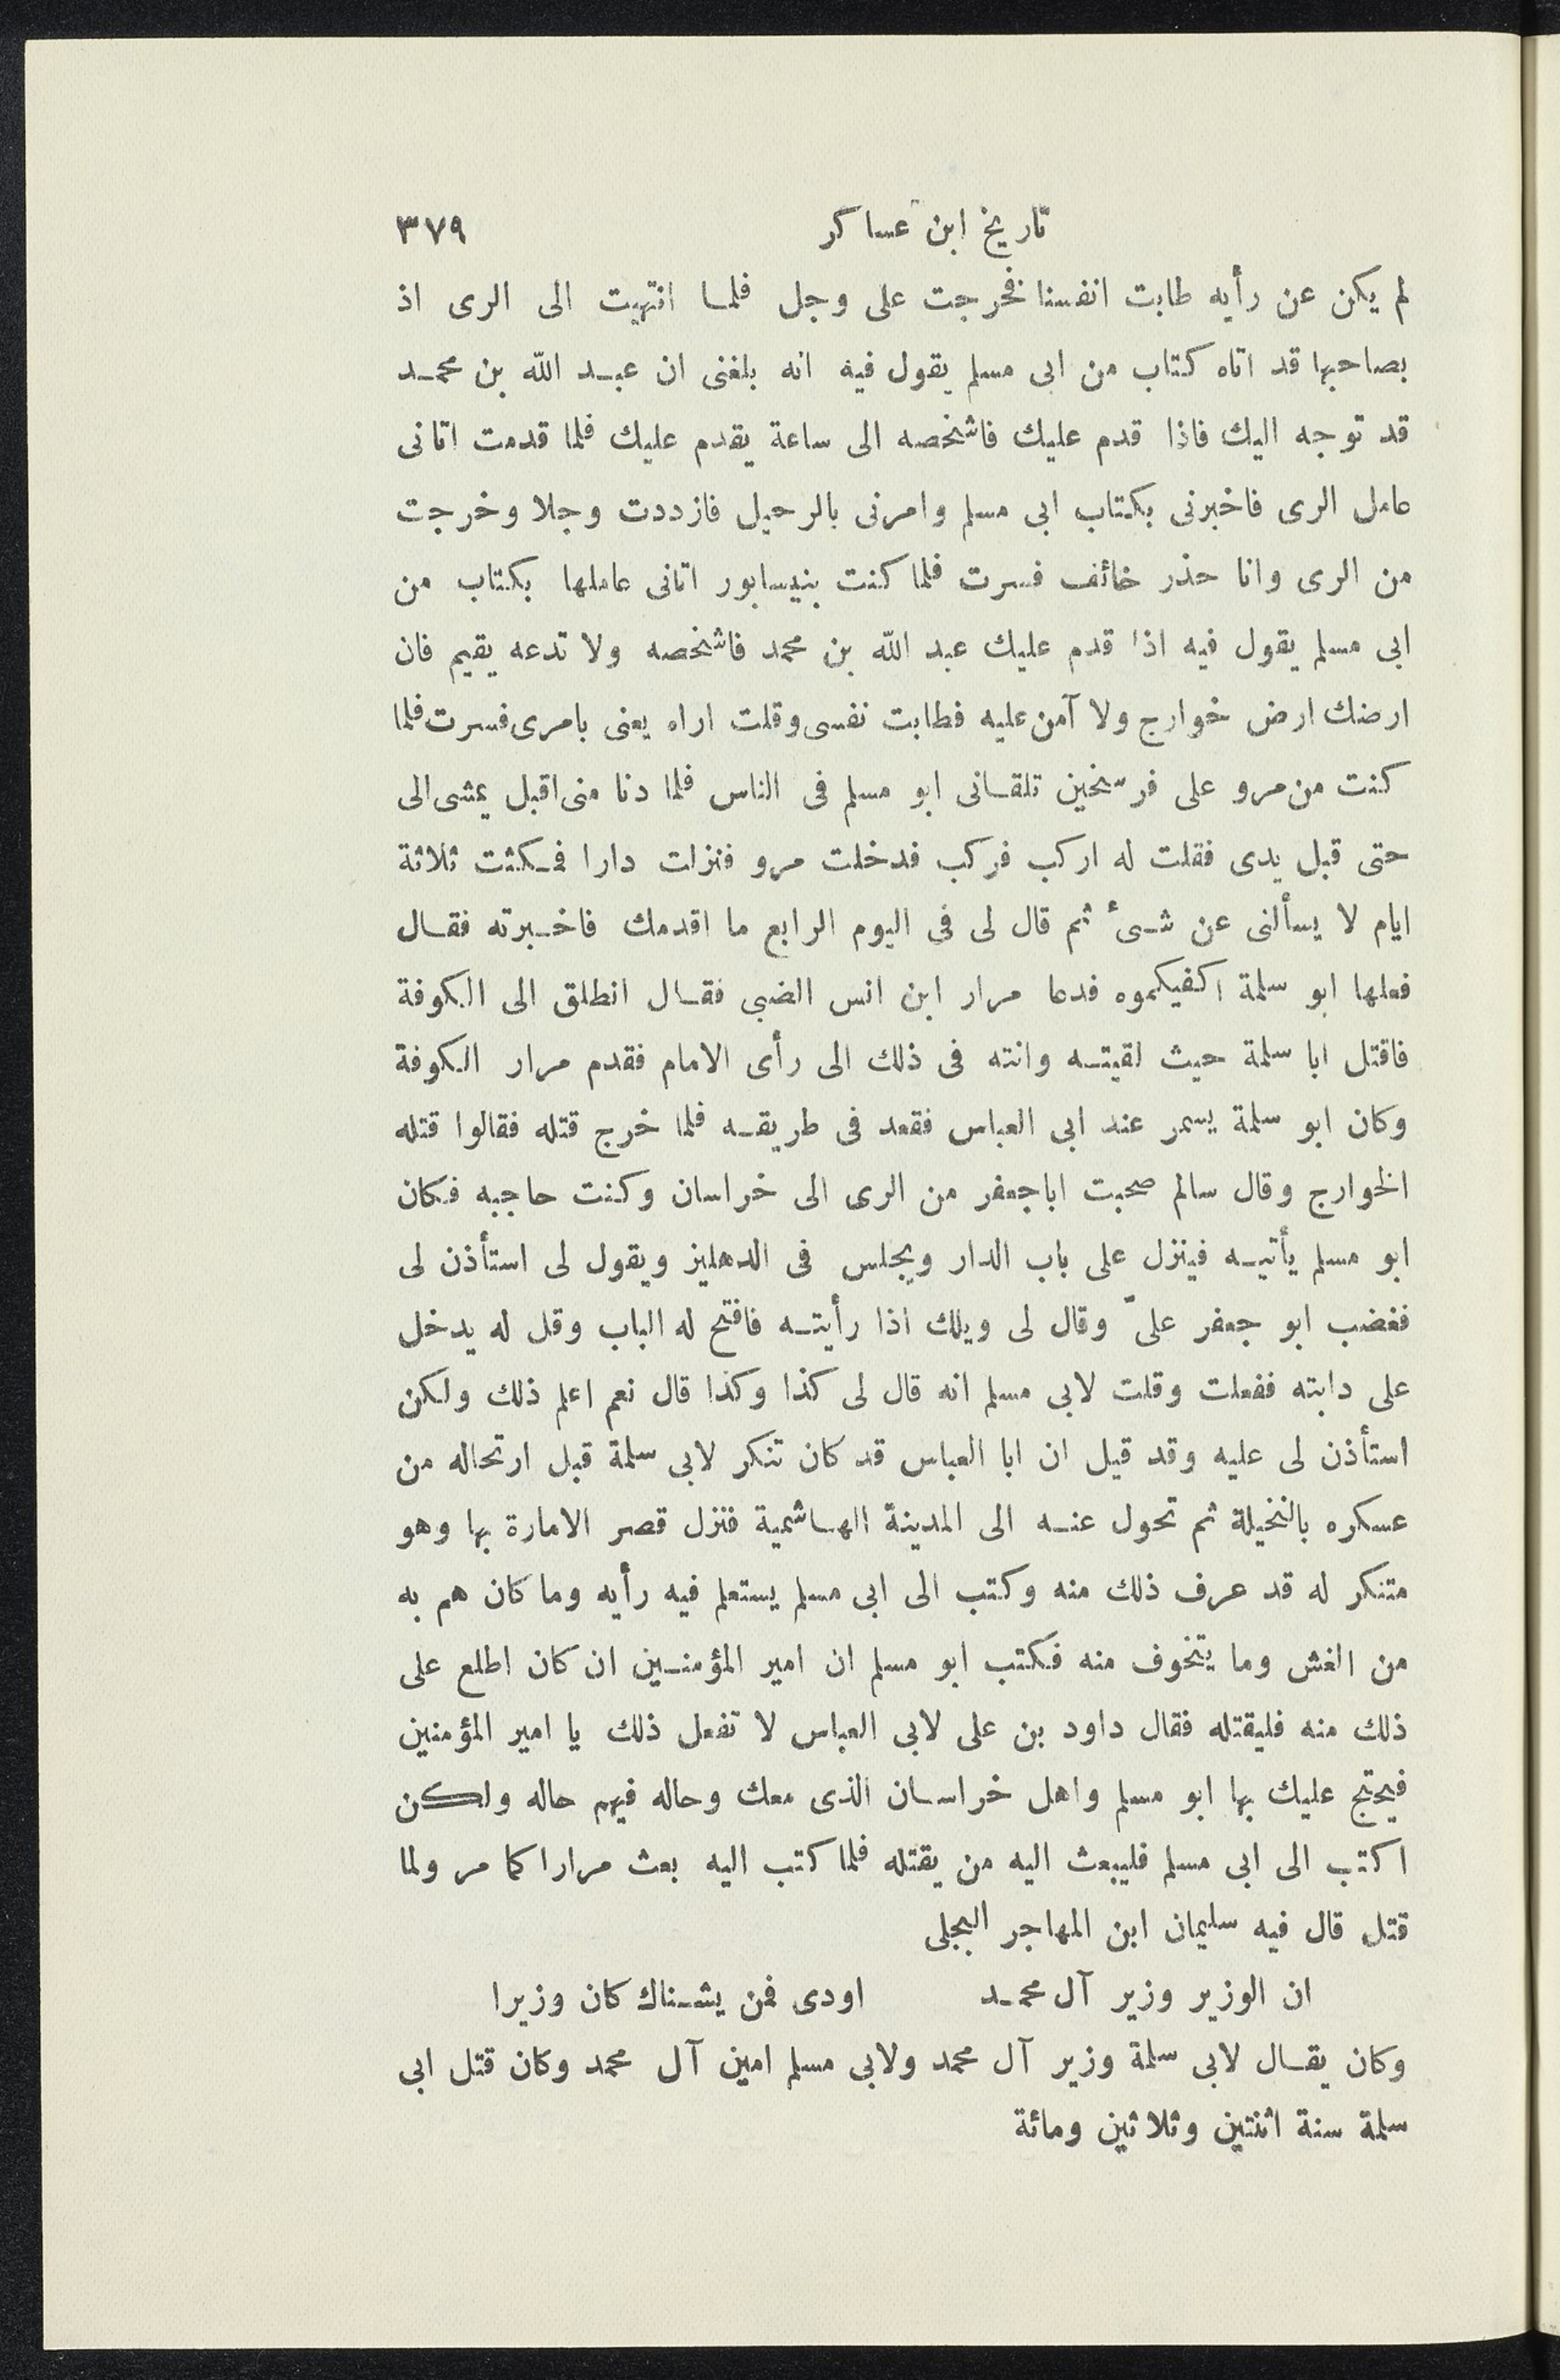 تاريخ ابن عساكر ٣٧٩
لم يكن عن رأيه طابت انفسنا فخرجت على وجل فلما انتهيت الى الرى اذ
بصاحبها قد اتاه كتاب من ابى مسلم يقول فيه انه بلغنى ان عبد الله بن محمد
قد توجه اليك فاذا قدم عليك فاشخصه الى ساعة يقدم عليك فلما قدمت اتانى
عامل الرى فاخبرنى بكتاب ابى مسلم وامرنى بالرحيل فازددت وجلا وخرجت
من الرى وانا حذر خائف فسرت فلما كنت بنيسابور اتانى عاملها بكتاب من
ابى مسلم يقول فيه اذا قدم عليك عبد الله بن محمد فاشخصه ولا تدعه يقيم فان
ارضك ارض خوارج ولا آمن عليه فطابت نفسى وقلت اراه يعنى بامرى فسرت فلما
كنت من مرو على فرسخين تلقانى ابو مسلم فى الناس فلما دنا منى اقبل يمشى الى
حتى قبل يدى فقلت له اركب فركب فدخلت مرو فنزلت دارا فمكثت ثلاثة
ايام لا يسألنى عن شىء ثم قال لى فى اليوم الرابع ما اقدمك فاخبرته فقال
فعلها ابو سلمة اكفيكموه فدعا مرار ابن انس الضبى فقال انطلق الى الكوفة
فاقتل ابا سلمة حيث لقيته وانته فى ذلك الى رأى الامام فقدم مرار الكوفة
وكان ابو سلمة يسمر عند ابى العباس فقعد فى طريقه فلما خرج قتله فقالوا قتله
الخوارج وقال سالم صحبت اباجعفر من الرى الى خراسان وكنت حاجبه فكان
ابو مسلم يأتيه فينزل على باب الدار ويجلس فى الدهليز ويقول لى استأذن لى
فغضب ابو جعفر علىّ وقال لى ويلك اذا رأيته فافتح له الباب وقل له يدخل
على دابته ففعلت وقلت لابى مسلم انه قال لى كذا وكذا قال نعم اعلم ذلك ولكن
استأذن لى عليه وقد قيل ان ابا العباس قد كان تنكر لابى سلمة قبل ارتحاله من
عسكره بالنخيلة ثم تحول عنه الى المدينة الهاشمية فنزل قصر الامارة بها وهو
متنكر له قد عرف ذلك منه وكتب الى ابى مسلم يستعلم فيه رأيه وما كان هم به
من الغش وما يتخوف منه فكتب ابو مسلم ان امير المؤمنين ان كان اطلع على
ذلك منه فليقتله فقال داود بن على لابى العباس لا تفعل ذلك يا امير المؤمنين
فيحتج عليك بها ابو مسلم واهل خراسان الذى معك وحاله فيهم حاله ولكن
اكتب الى ابى مسلم فليبعث اليه من يقتله فلما كتب اليه بعث مرارا كما مر ولما
قتل قال فيه سليمان ابن المهاجر البجلى
ان الوزير وزير آل محمد اودى فمن يشناك كان وزيرا
وكان يقال لابى سلمة وزير آل محمد ولابى مسلم امين آل محمد وكان قتل ابى
سلمة سنة اثنتين وثلاثين ومائة